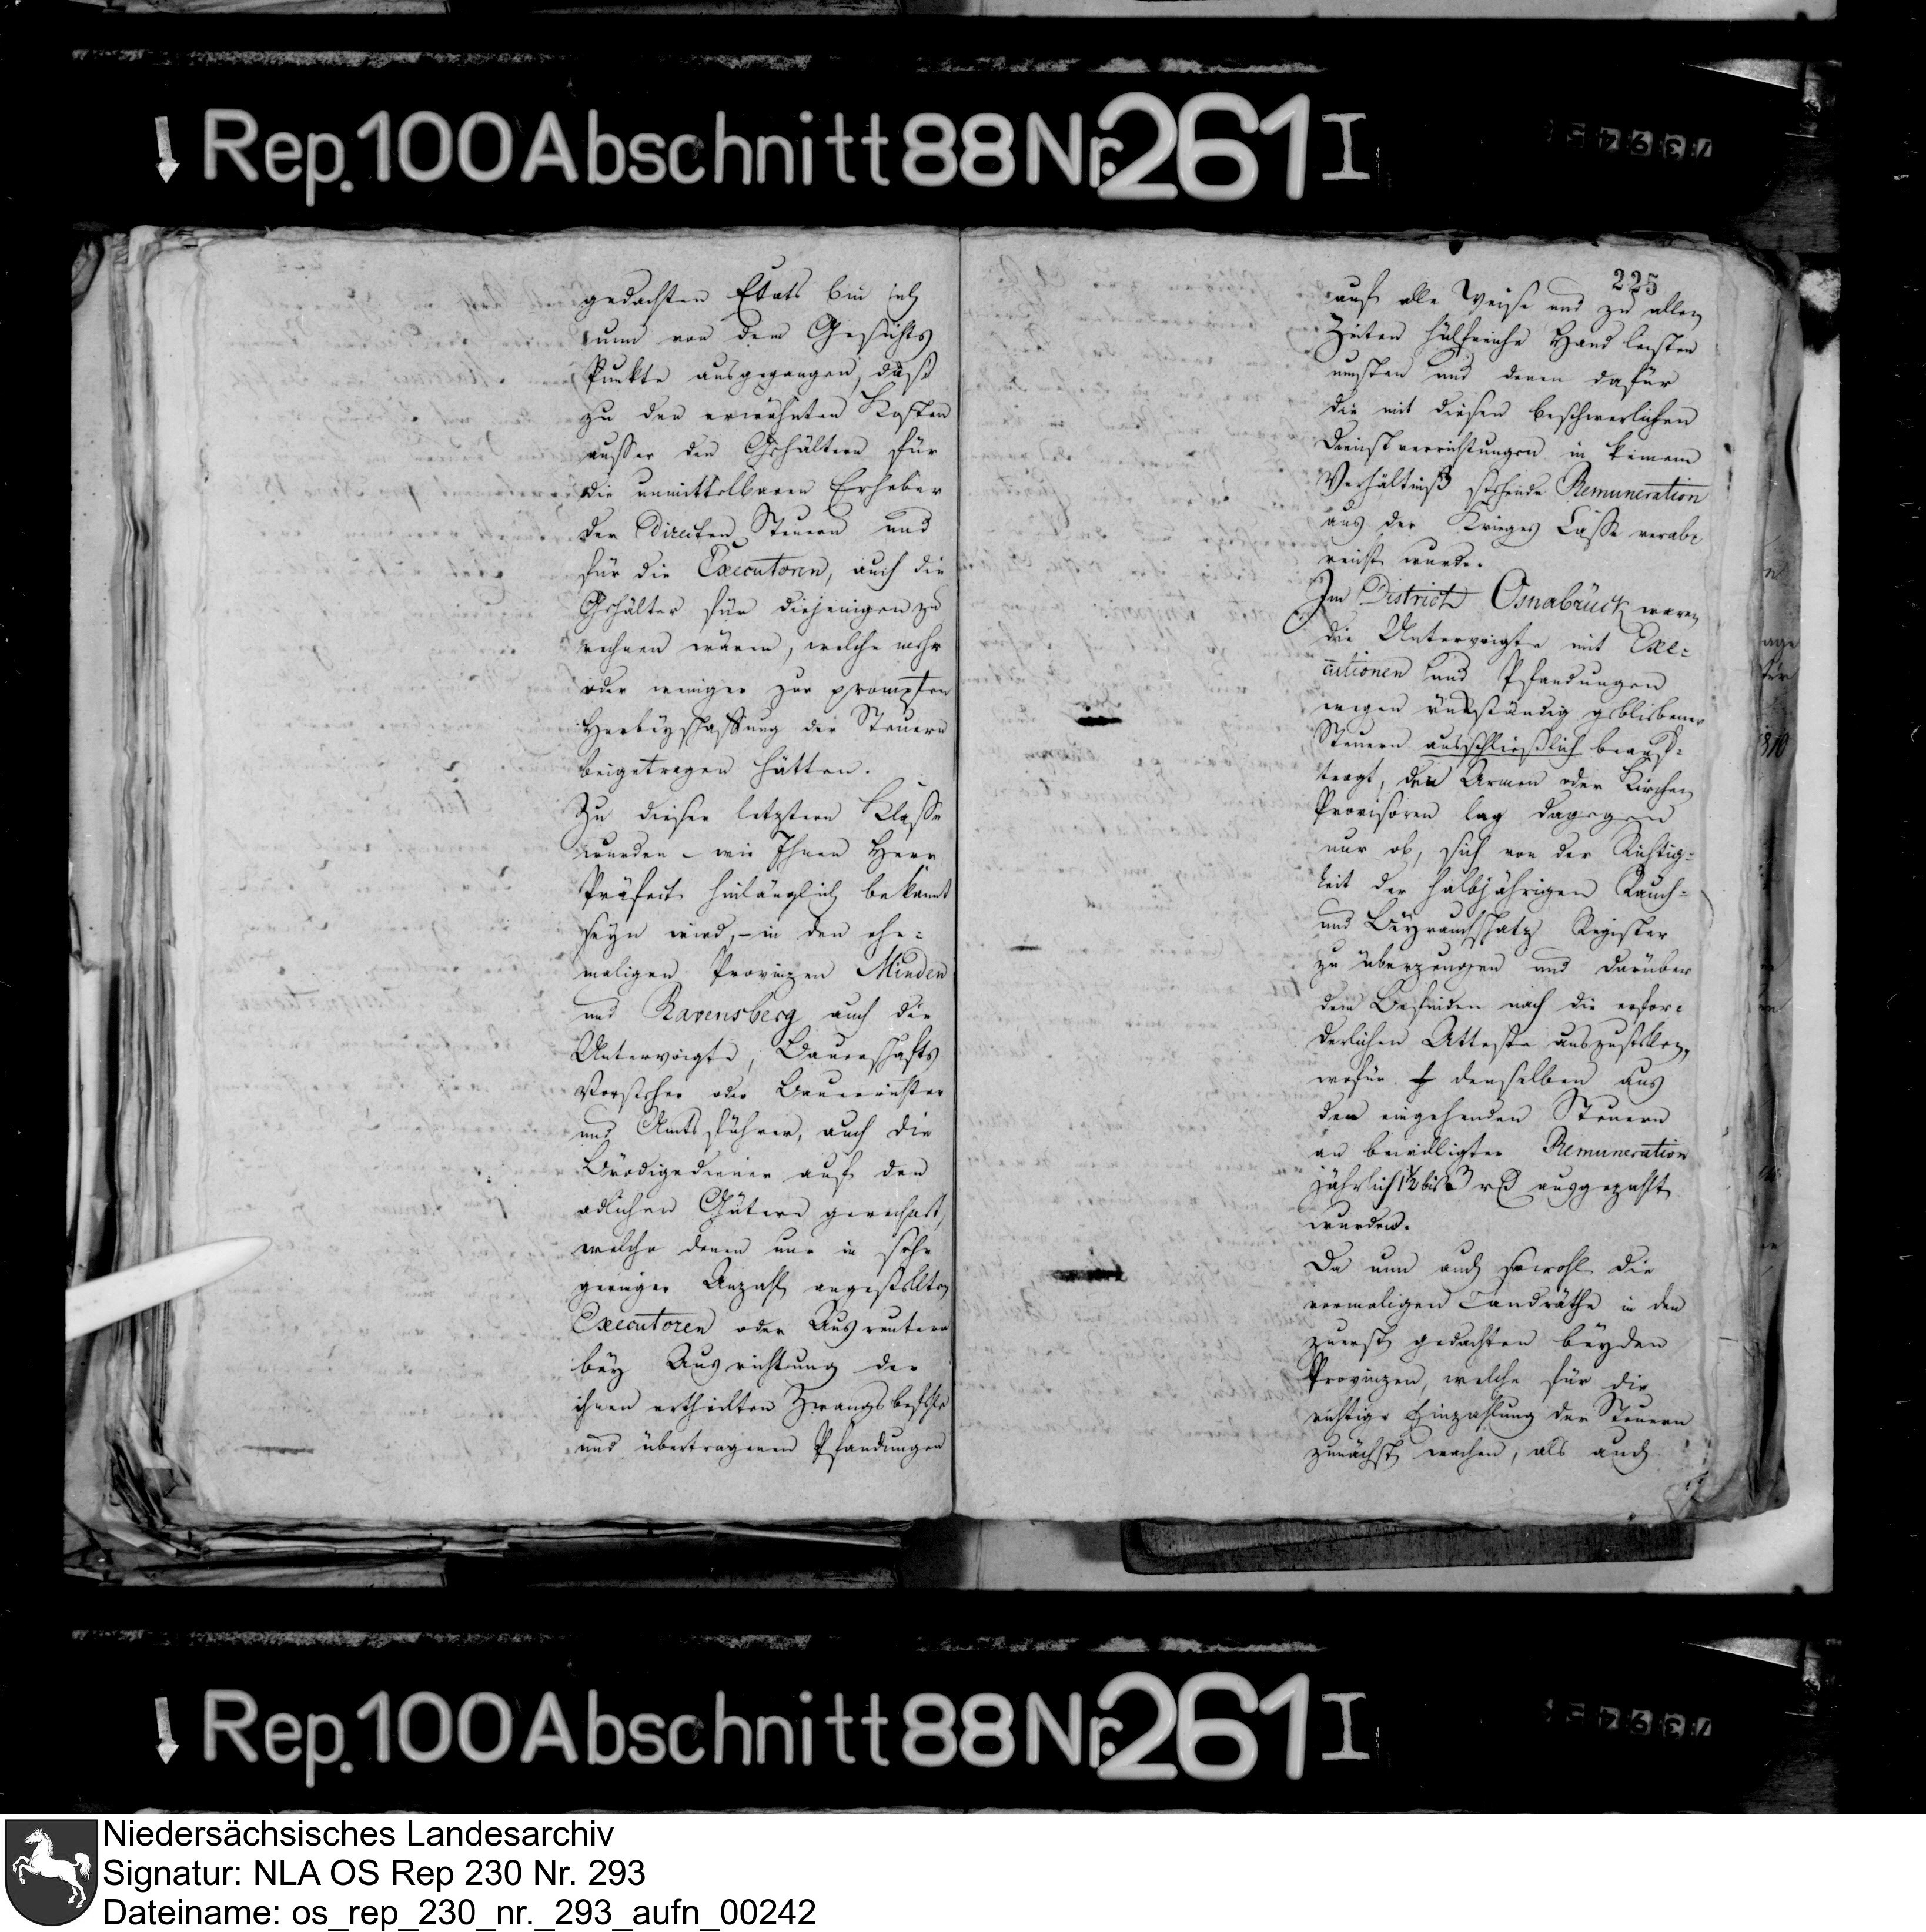 Rep. 100 Abschnitt 88 Nr. 261 I
73945
gedachten Etats bin ich
nun von dem Gesichts
Punkte ausgegangen, daß
zu den erwähnten Kosten
ausser den Gehältern für
die unmittelbaren Erheber
der Directen Steuern und
für die Executoren, auch die
Gehälter für diejenigen zu
rechnen wären, welche mehr
oder weniger zur prompten
Herbeyschaffung der Steuern
beigetragen hätten.
Zu dieser letztern Klasse
wurden - wie Ihnen Herr
Präfect hinlänglich bekannt
seyn wird, - in den ehe=
maligen Provinzen Minden
und Ravensberg auch die
Untervoigte, Bauerschafts
Vorsteher oder Bauerrichter
und Amtsführer, auch die
Brödigediener auf den
adlichen Gütern gerechnet,
welche denen nur in sehr
geringer Anzahl angestellten
Executoren oder Ausreutern
bey Ausrichtung der
ihnen ertheilten Zwangsbefehle
und übertragenen Pfandungen
225
auf alle Weise und zu allen
Zeiten hülfreiche Hand leisten
mußten und denen dafür
die mit diesen beschwerlichen
Dienstverrichtungen in keinem
Verhältniß stehende Remuneration
aus der Krieges Casse verab=
reicht wurde.
Im District Osnabrück waren
die Untervoigte mit Exe=
cutionen und Pfandungen
wegen rückständig gebliebener
Steuern ausschließlich beauf=
tragt, den Armen oder Kirchen
Provisoren lag dagegen
nur ob, sich von der Richtig=
keit der halbjährigen Rauch=
und Beyrauchschatz Register
zu überzeugen und darüber
dem Befinden nach die erfor=
derlichen Atteste auszustellen,
wofür denselben aus
den eingehenden Steuern
an bewilligter Remuneration
jährlich 1½ bis 3 rß ausgezahlt
wurden.
Da nun auch sowohl die
vormaligen Landräthe in den
zuerst gedachten beyden
Provinzen, welche für die
richtige Einzahlung der Steuern
zunächst wachen, als auch
Rep. 100 Abschnitt 88 Nr. 261 I
73945
Niedersächsisches Landesarchiv
Signatur: NLA OS Rep 230 Nr. 293
Dateiname: os_rep_230_nr._293_aufn_00242